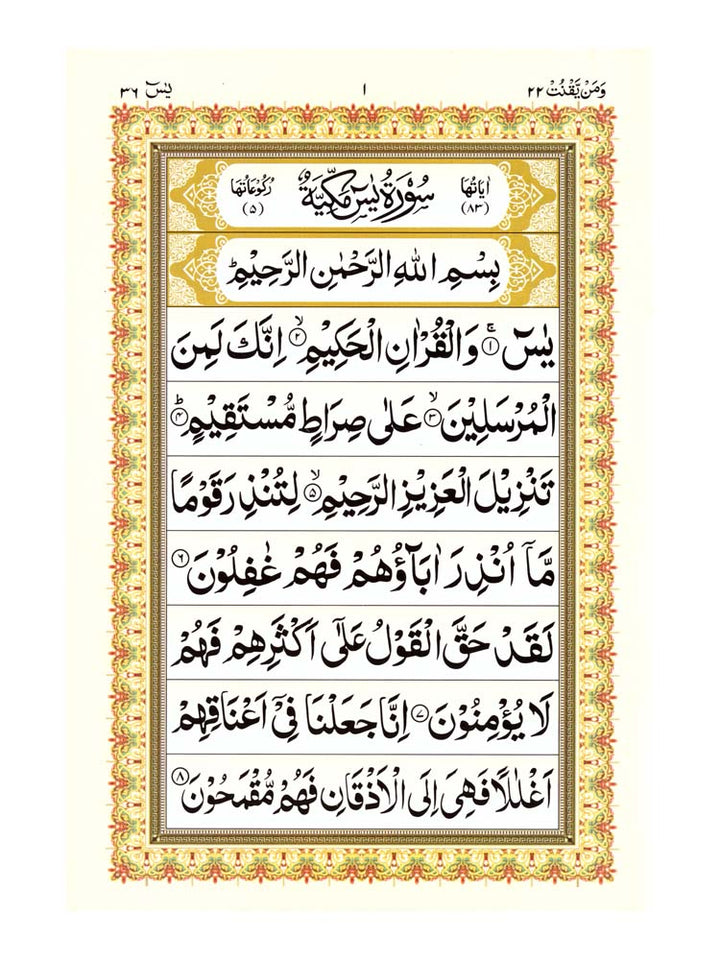 وَمَنْ يَّقْنُتْ ٢٢
١
يٰسٓ ٣٦
اٰيَاتُهَا (٨٣)
سُوْرَةُ يٰسٓ مَكِّيَّةٌ
رُكُوْعَاتُهَا (٥)
بِسْمِ اللهِ الرَّحْمٰنِ الرَّحِيْمِ ؕ
يٰسٓ ۚ ﴿١﴾ وَالْقُرْاٰنِ الْحَكِيْمِ ۙ ﴿٢﴾ اِنَّكَ لَمِنَ
الْمُرْسَلِيْنَ ۙ ﴿٣﴾ عَلٰى صِرَاطٍ مُّسْتَقِيْمٍ ؕ ﴿٤﴾
تَنْزِيْلَ الْعَزِيْزِ الرَّحِيْمِ ۙ ﴿٥﴾ لِتُنْذِرَ قَوْمًا
مَّاۤ اُنْذِرَ اٰبَآؤُهُمْ فَهُمْ غٰفِلُوْنَ ﴿٦﴾
لَقَدْ حَقَّ الْقَوْلُ عَلٰٓى اَكْثَرِهِمْ فَهُمْ
لَا يُؤْمِنُوْنَ ﴿٧﴾ اِنَّا جَعَلْنَا فِيْۤ اَعْنَاقِهِمْ
اَغْلٰلًا فَهِيَ اِلَى الْاَذْقَانِ فَهُمْ مُّقْمَحُوْنَ ﴿٨﴾